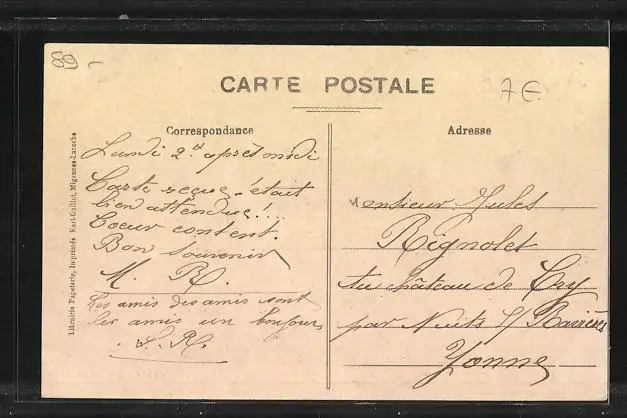 89 -
CARTE POSTALE
7€
Correspondance
Adresse
Librairie Papeterie, Imprimés Karl-Guillot, Migennes-Laroche
Lundi 2 après midi
Carte reçue. était
bien attendue!...
Coeur content.
Bon Souvenir
M. R.
Les amis des amis sont
les amis un bonjour
. L. R.
Monsieur Jules
Rignolet
au château de Cry
par Nuits s/ Ravières
Yonne